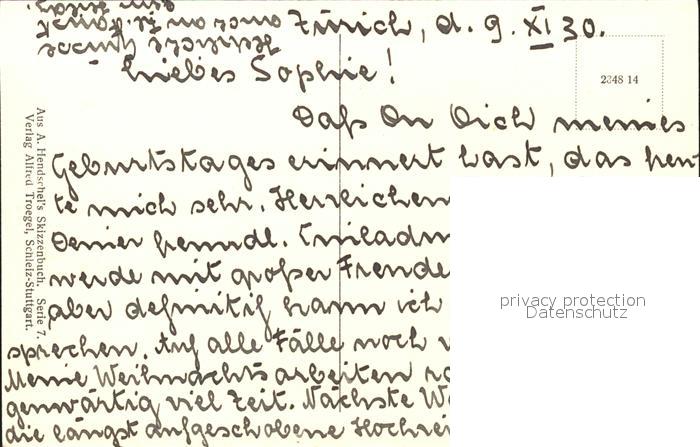 Zürich, d. 9. XI 30.
2348 14
Liebes Sophie!
Daß Du Dich meines
Geburtstages erinnert hast, das freu-
te mich sehr. Herzlichen
Deiner freundl. Einladun
werde mit großer Freude
aber definitif kann ich
sprechen. Auf alle Fälle noch
Meine Weihnachtsarbeiten
genwärtig viel Zeit. Nächste
die längst aufgeschobene Hochzei
Aus A. Hendschel's Skizzenbuch. Serie 7.
Verlag Alfred Troegel, Schleiz-Stuttgart.
privacy protection
Datenschutz